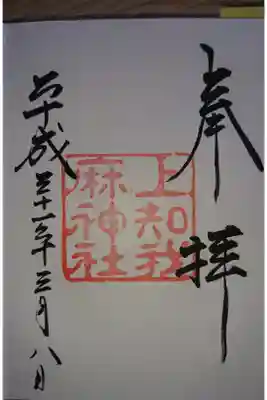 奉拝
上知我
麻神社
平成三十一年三月八日